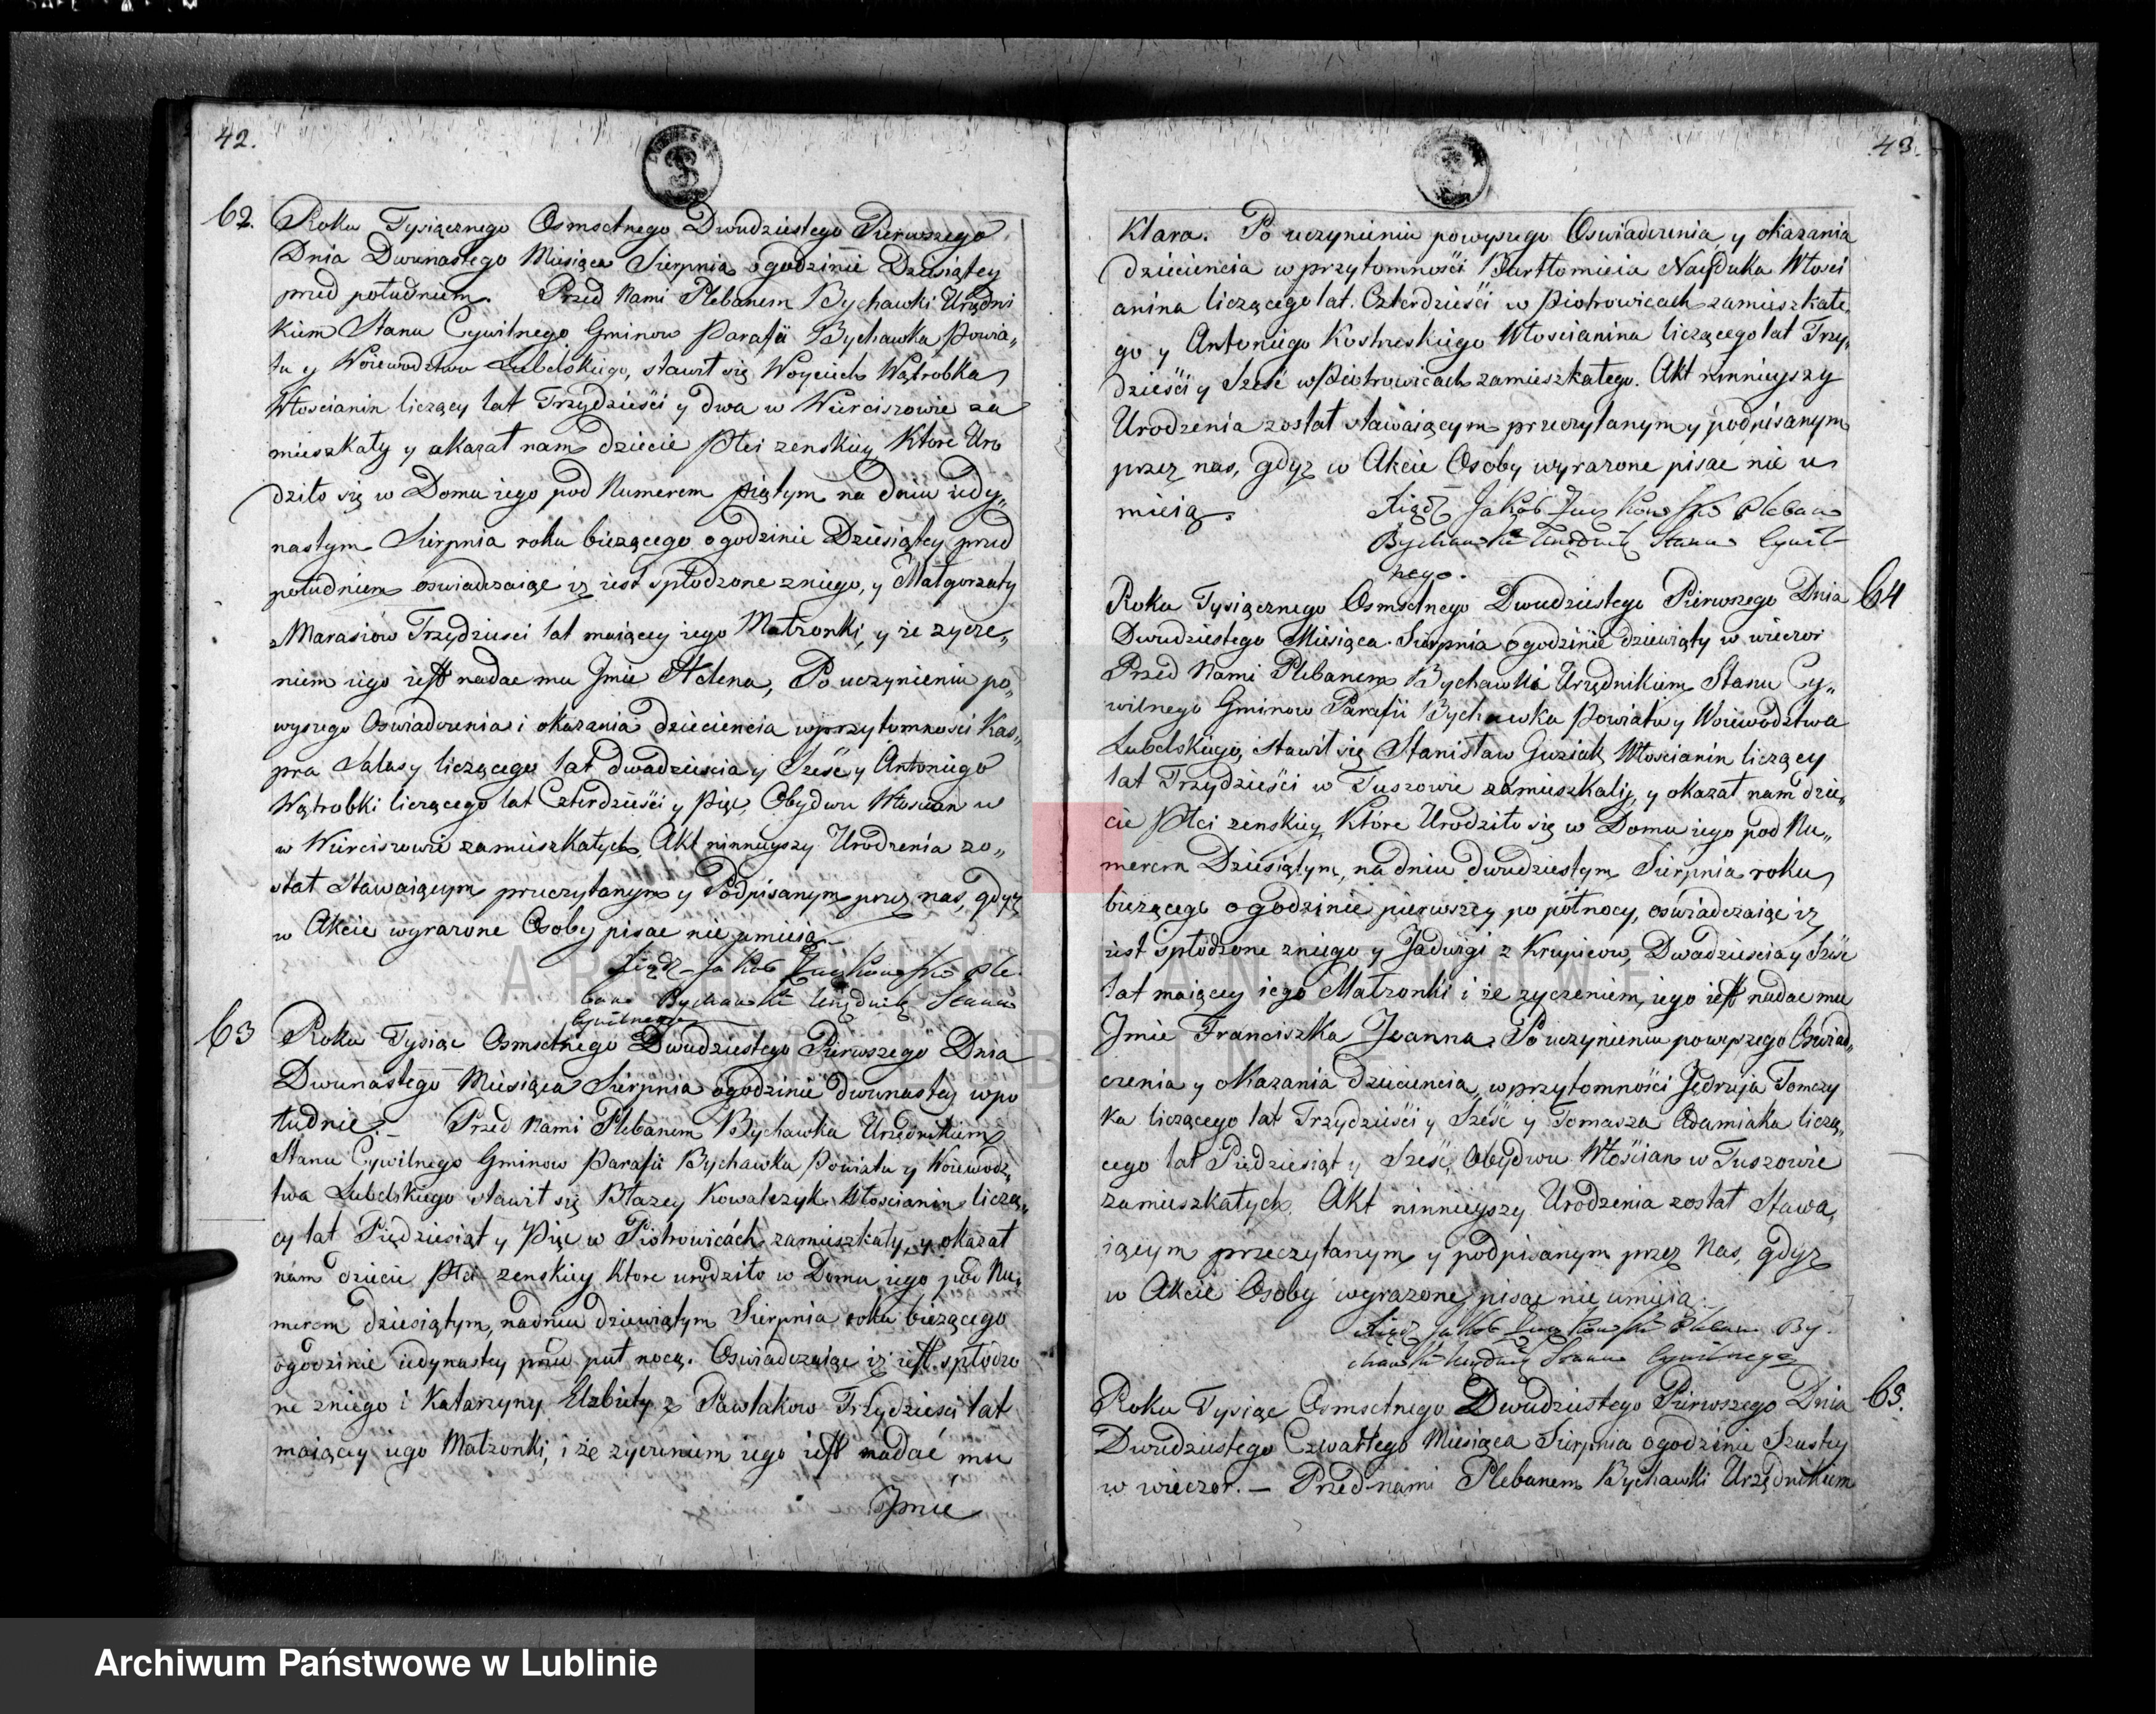 42.
62. Roku Tysiącznego Osmsetnego Dwudziestego Pierwszego
Dnia Dwunastego Miesiąca Sierpnia ogodzinie Dziesiątey
przed południem. Przed Nami Plebanem Bychawki Urzędni
kiem Stanu Cywilnego Gminow Parafii Bychawka Powia„
tu y Woiewodztwa Lubelskiego, stawił się Woyciech Wątrobka
Włoscianin liczący lat Trzydzieści y dwa w Wierciszowie za
mieszkały y okazał nam dziecie Płci zenskiey Ktore Uro
dziło się w Domu iego pod Numerem piątym na dniu iedy„
nastym Sierpnia roku bieżącego ogodzinie Dziesiątey przed
południem oswiadczaiąc iz iest spłodzone zniego, y Małgorzaty
z Marasiow Trzydziesci lat maiącey iego Małzonki, y że zycze„
niem iego iest nadac mu Jmie Helena, Po uczynieniu po„
wyszego Oswiadczenia i okazania dzieciencia wprzytomnosci Kas„
pra Salasy liczącego lat dwadziescia y Sześć y Antoniego
Wątrobki liczącego lat Czterdzieści y pięc, Obydwu Włoscian w
w Wierciszowie zamieszkałych. Akt ninnieyszy Urodzenia zo„
stał Stawaiącym przeczytanym y Podpisanym przez nas, gdyz
w Akcie wyrazone Osoby pisac nie umieią
Xiądz Jakob Ple
ban Bychawki Urzędnik Stanu
Cywilnego
63 Roku Tysiąc Osmsetnego Dwudziestego Pierwszego Dnia
Dwunastego Miesiąca Sierpnia ogodzinie dwunastey wpo
łudnie. – Przed Nami Plebanem Bychawka Urzędnikiem
Stanu Cywilnego Gminow Parafii Bychawka Powiatu y Woiewodz„
twa Lubelskiego stawił się Błazey Kowalczyk Włoscianin liczą„
cy lat Piędziesiąt y Pięc w Piotrowicach zamieszkały, y okazał
nam dziecie Płci zenskiey Ktore urodziło w Domu iego pod Nu„
merem dziesiątym, nadniu dziewiątym Sierpnia roku bieżącego
ogodzinie iedynastey przed puł nocą. Oswiadczaiąc iż iest spłodzo
ne zniego i Katarzyny Elzbiety z Pawlakow Trzydziesci lat
maiącey iego Małzonki, i że zyczeniem iego iest nadać mu
Jmie
43.
Klara. Po uczynieniu powyszego Oswiadczenia y okazania
dzieciencia w przytomności Bartłomieia Nayduka Włosci
anina liczącego lat Czterdzieści w Piotrowicach zamieszkałe
go y Antoniego Włoscianina liczącego lat Trzy„
dzieści y Sześć w Piotrowicach zamieszkałego. Akt ninnieyszy
Urodzenia został stawaiącym przeczytanym y podpisanym
przez nas, gdyz w Akcie Osoby wyrazone pisac nie u
mieią.
Xiądz Jakob Pleban
Bychawki Urzędnik Stanu Cywil
nego.
64
Roku Tysiącznego Osmsetnego Dwudziestego Pierwszego Dnia
Dwudziestego Miesiąca Sierpnia ogodzinie dziewiąty w wieczor
Przed Nami Plebanem Bychawki Urzędnikiem Stanu Cy„
wilnego Gminow Parafii Bychawka Powiatu y Woiewodztwa
Lubelskiego, stawił się Stanisław Guziak Włoscianin liczący
lat Trzydzieści w Tuszowie zamieszkaly, y okazał nam dzie„
cie Płci zenskiey Które Urodziło się w Domu iego pod Nu„
merem Dziesiątym, na dniu dwudziestym Sierpnia roku
bieżącego ogodzinie pierwszey po północy, oswiadczaiąc iz
iest spłodzone zniego y Jadwigi z Krupicow, Dwadziescia y Sześć
lat maiącey iego Małzonki i że zyczeniem, iego iest nadac mu
Jmie Franciszka Joanna. Po uczynieniu powyszego Oswiad„
czenia y okazania dzieciencia, w przytomności Jędrzeja Tomczy
ka liczącego lat Trzydzieści y Sześć y Tomasza Adamiaka liczą„
cego lat Piędziesiąt y Sześć, Obydwu Włościan w Tuszowie
zamieszkałych. Akt ninnieyszy Urodzenia został Stawa„
iącym przeczytanym y podpisanym przez Nas, gdyz
w Akcie Osoby wyrazone pisac nie umieią.
Xiądz Jakob Pleban By
chawki Urzędnik Stanu Cywilnego
65.
Roku Tysiąc Osmsetnego Dwudziestego Pierwszego Dnia
Dwudziestego Czwartego Miesiąca Sierpnia ogodzinie Szustey
w wieczor. – Przed nami Plebanem Bychawki Urzędnikiem
ARCHIWUM PAŃSTWOWE
W LUBLINIE
Archiwum Państwowe w Lublinie